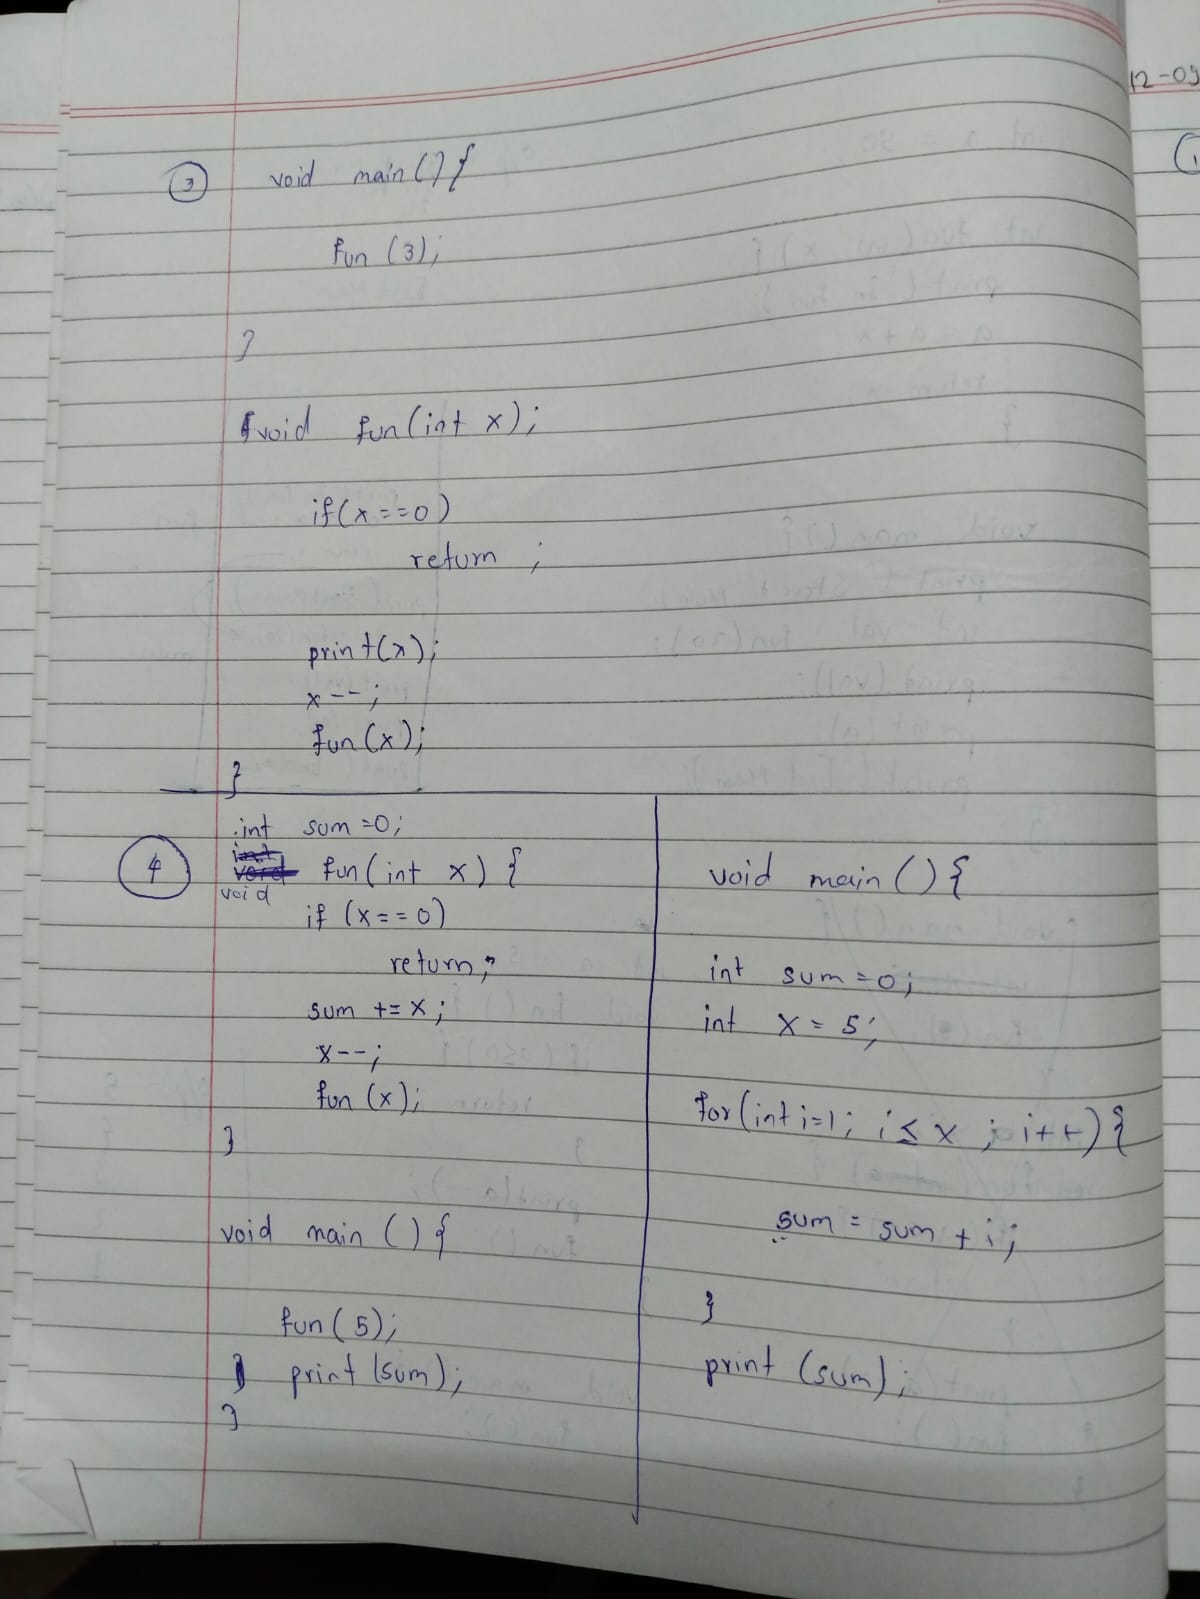 12-09
3 void main() {
fun (3);
}
void fun(int x);
if(x==0)
return ;
print(x);
x--;
fun(x);
}
4
int sum=0;
void fun(int x) {
if (x==0)
return;
sum += x;
x--;
fun (x);
}
void main () {
fun(5);
print (sum);
}
void main () {
int sum=0;
int x = 5;
for(int i=1; i≤x ; i++) {
sum = sum + i;
}
print (sum);